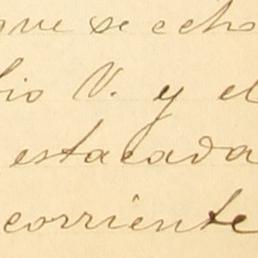 que se echo
lio V. y el
estacada
corriente